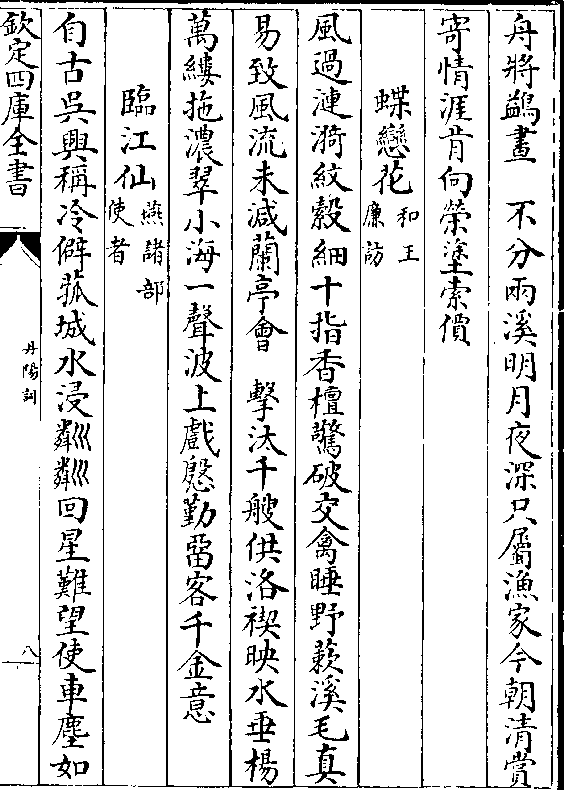 舟將鷁畫　不分兩溪明月夜深只屬漁家今朝清賞
寄情涯肯向榮塗索價
蝶戀花和王廉訪
風過漣漪紋縠細十指香檀驚破交禽睡野蔌溪毛真
易致風流未減蘭亭會　擊汰千艘供洛禊映水垂楊
萬縷拖濃翠小海一聲波上戲慇勤畱客千金意
臨江仙燕諸部使者
自古吳興稱冷僻菰城水浸粼粼回星難望使車塵如
欽定四庫全書
丹陽詞
八